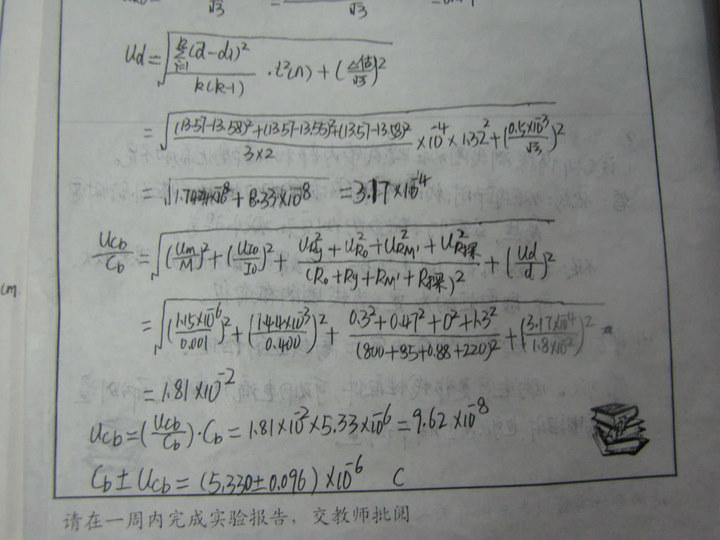 √3 √3
Ud = √(∑(d̄-di)²/k(k-1) · t²(n) + (Δ仪/√3)²)
= √(((13.57-13.58)²+(13.57-13.55)²+(13.57-13.58)²)/(3×2) ×10⁻⁴×1.32²+(0.5×10⁻³/√3)²)
= √(1.7424×10⁻⁸ + 8.33×10⁻⁸) = 3.17×10⁻⁴
Ucb/Cb = √((Um/M)² + (UI0/I0)² + (URg²+UR0²+URM'²+UR探²)/(R0+Rg+RM'+R探)² + (Ud/d)²)
cm
= √((1.15×10⁻⁶/0.001)² + (1.44×10⁻³/0.400)² + (0.3²+0.47²+0²+1.3²)/(800+85+0.88+220)² + (3.17×10⁻⁴/1.8×10⁻²)²)
= 1.81×10⁻²
Ucb = (Ucb/Cb)·Cb = 1.81×10⁻²×5.33×10⁻⁶ = 9.62×10⁻⁸
Cb ± Ucb = (5.330±0.096)×10⁻⁶ C
请在一周内完成实验报告，交教师批阅